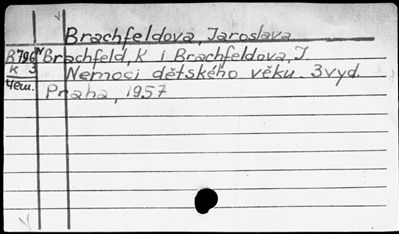 Brachfeldova, Jaroslava
B796 N Brachfeld, K i Brachfeldova, J.
K 3 Nemoci dětského věku. 3vyd.
Чеш. Praha, 1957